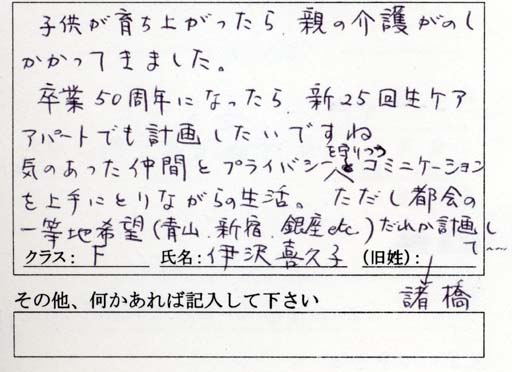 子供が育ち上がったら、親の介護がのし
かかってきました。
卒業50周年になったら、新25回生ケア
アパートでも計画したいですね
気のあった仲間とプライバシーを守りつつコミニケーション
を上手にとりながらの生活。ただし都会の
一等地希望(青山、新宿、銀座etc)だれか計画して~~
クラス: F 氏名: 伊沢喜久子 (旧姓): 諸橋
その他、何かあれば記入して下さい